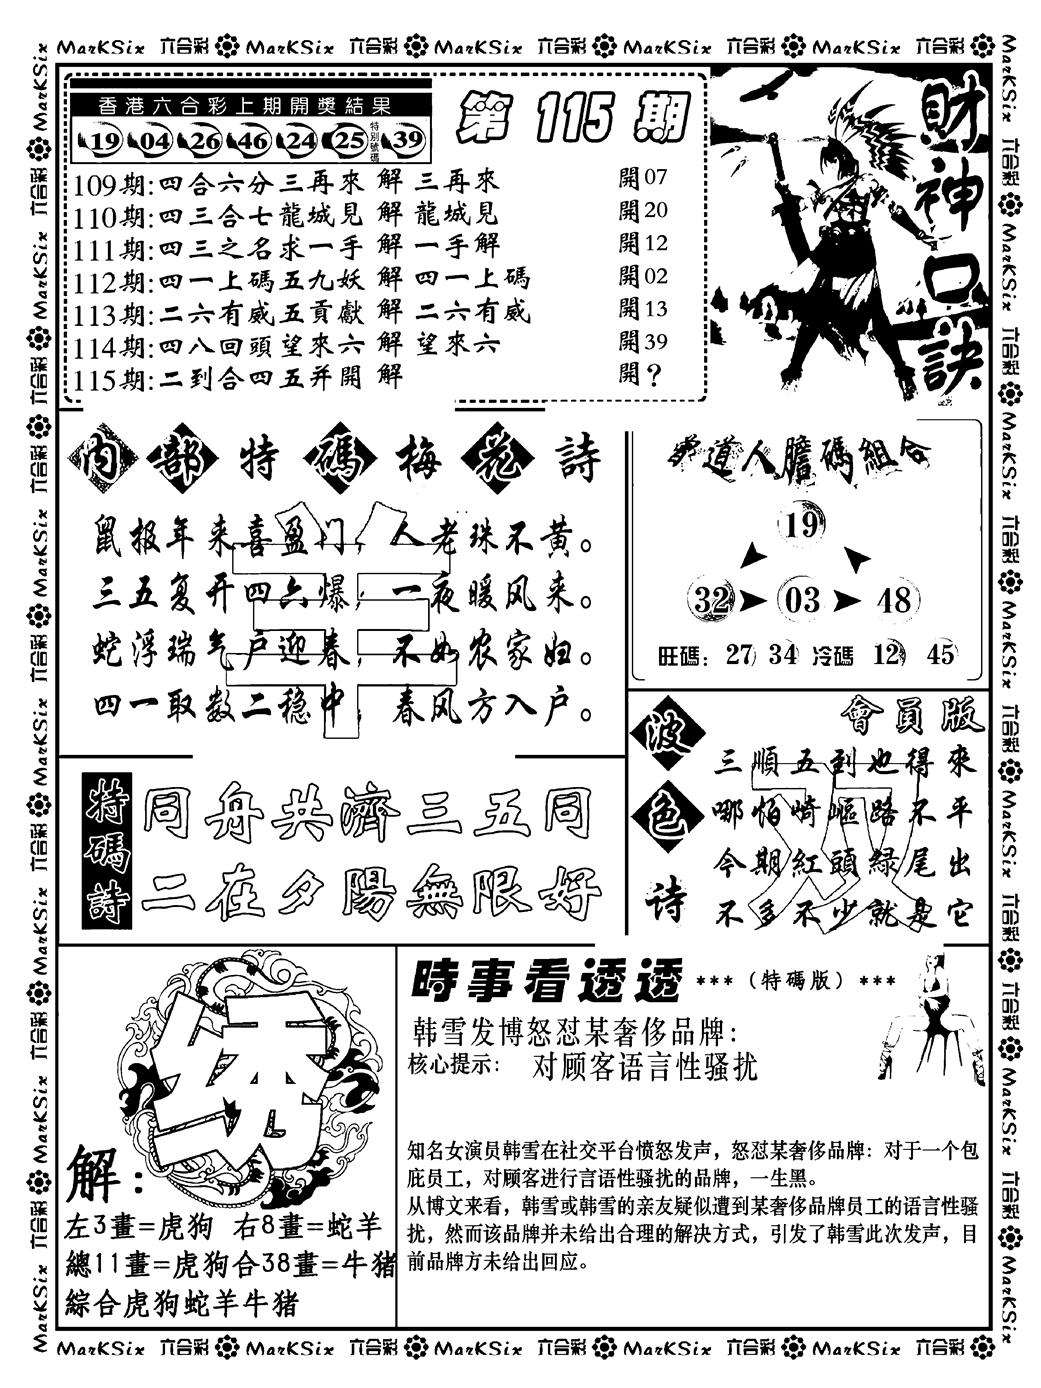 MarKSix 六合彩 MarKSix 六合彩 MarKSix 六合彩 MarKSix 六合彩 MarKSix 六合彩
香港六合彩上期開獎結果
19 04 26 46 24 25 特別號碼 39
第 115 期
109期:四合六分三再來 解 三再來 開07
110期:四三合七龍城見 解 龍城見 開20
111期:四三之名求一手 解 一手解 開12
112期:四一上碼五九妖 解 四一上碼 開02
113期:二六有威五貢獻 解 二六有威 開13
114期:四八回頭望來六 解 望來六 開39
115期:二到合四五并開 解 開?
財神口訣
内部特碼梅花詩
鼠报年来喜盈门，人老珠不黄。
三五复开四六爆，一夜暖风来。
蛇浮瑞气户迎春，不如农家妇。
四一取数二稳中，春风方入户。
羊
道人膽碼組合
19
32 03 48
旺碼：27 34 冷碼 12 45
特碼詩
同舟共濟三五同
二在夕陽無限好
波色诗
會員版
三順五到也得來
哪怕崎嶇路不平
今期紅頭綠尾出
不多不少就是它
双
绣
解：
左3畫=虎狗 右8畫=蛇羊
總11畫=虎狗合38畫=牛豬
綜合虎狗蛇羊牛猪
時事看透透 ***（特碼版）***
韩雪发博怒怼某奢侈品牌：
核心提示： 对顾客语言性骚扰
知名女演员韩雪在社交平台愤怒发声，怒怼某奢侈品牌：对于一个包
庇员工，对顾客进行言语性骚扰的品牌，一生黑。
从博文来看，韩雪或韩雪的亲友疑似遭到某奢侈品牌员工的语言性骚
扰，然而该品牌并未给出合理的解决方式，引发了韩雪此次发声，目
前品牌方未给出回应。
MarKSix 六合彩 MarKSix 六合彩 MarKSix 六合彩 MarKSix 六合彩 MarKSix 六合彩